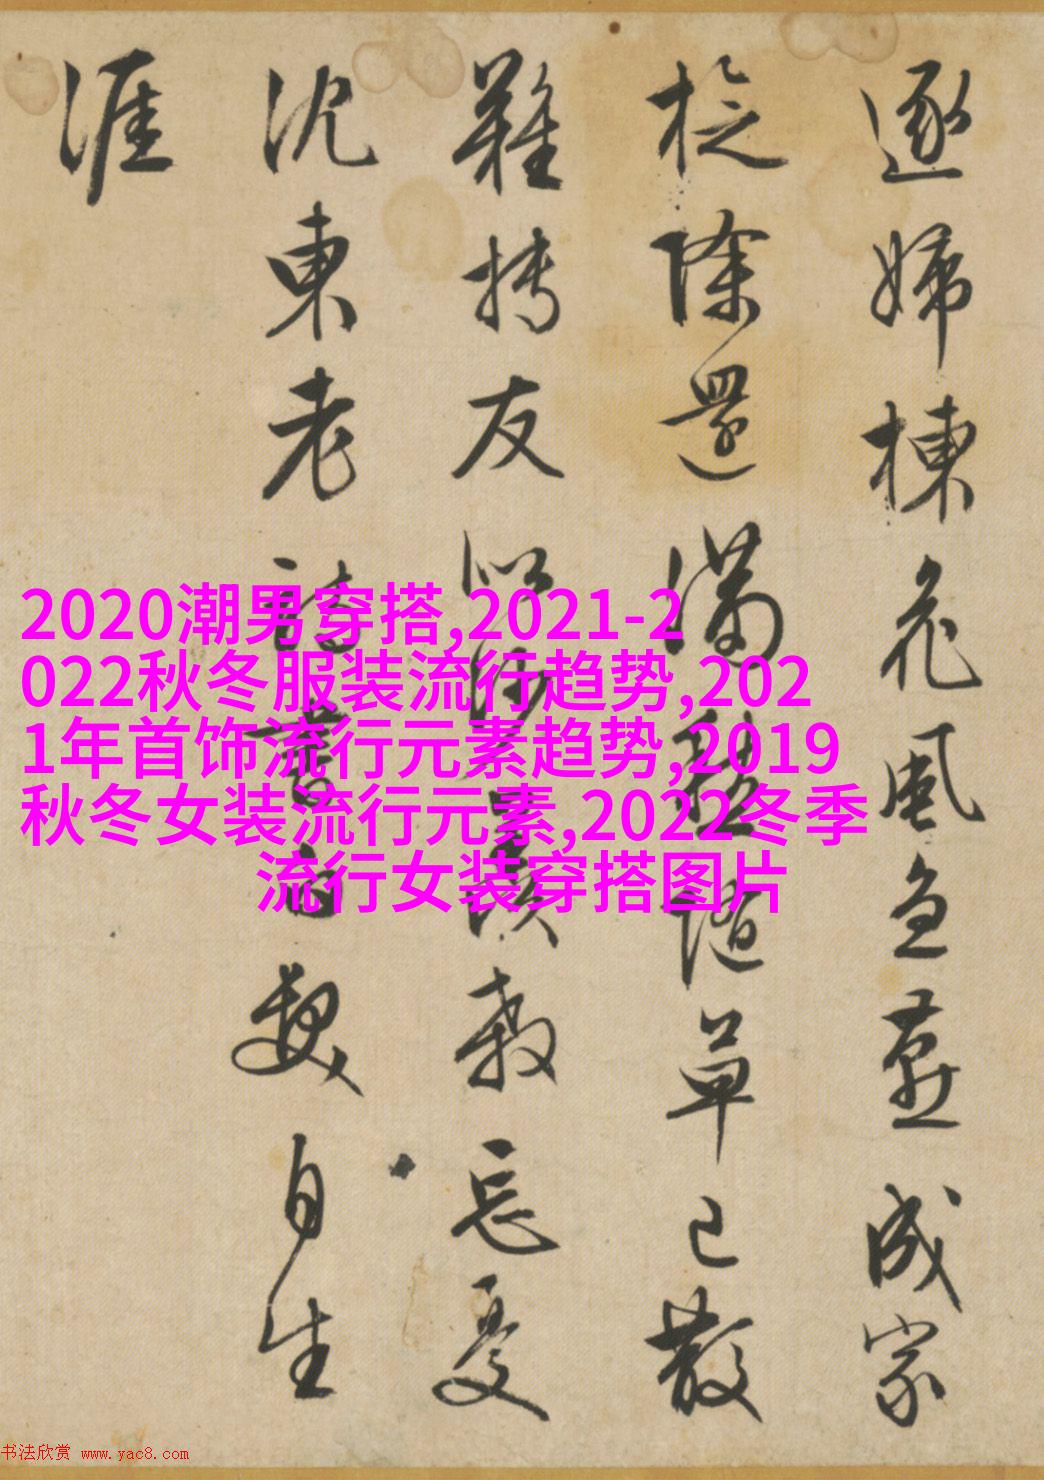 逐婦棟花風燕成家
除還滿隨草已散
難友忘憂
沈東老詩書自生
涯
2020潮男穿搭,2021-2
022秋冬服装流行趋势,202
1年首饰流行元素趋势,2019
秋冬女装流行元素,2022冬季
流行女装穿搭图片
书法欣赏 www.yac8.com